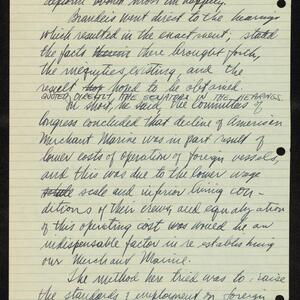 Brandeis went direct to the hearings
which resulted in the enactment; stated
the facts there brought forth,
the iniquities existing, and the
result hoped to be obtained.
QUOTED DIRECTLY THE SENATORS IN THE HEARINGS.
In short, he said, the Committees of
Congress concluded that decline of American
Merchant Marine was in part result of
lower costs of operation of foreign vessels,
and this was due to the lower wage
scale and inferior living con-
ditions of their crews, and equalization
of this operating cost was would be an
indispensable factor in re-establishing
our Merchant Marine.
The method here tried was to raise
the standards of employment on foreign